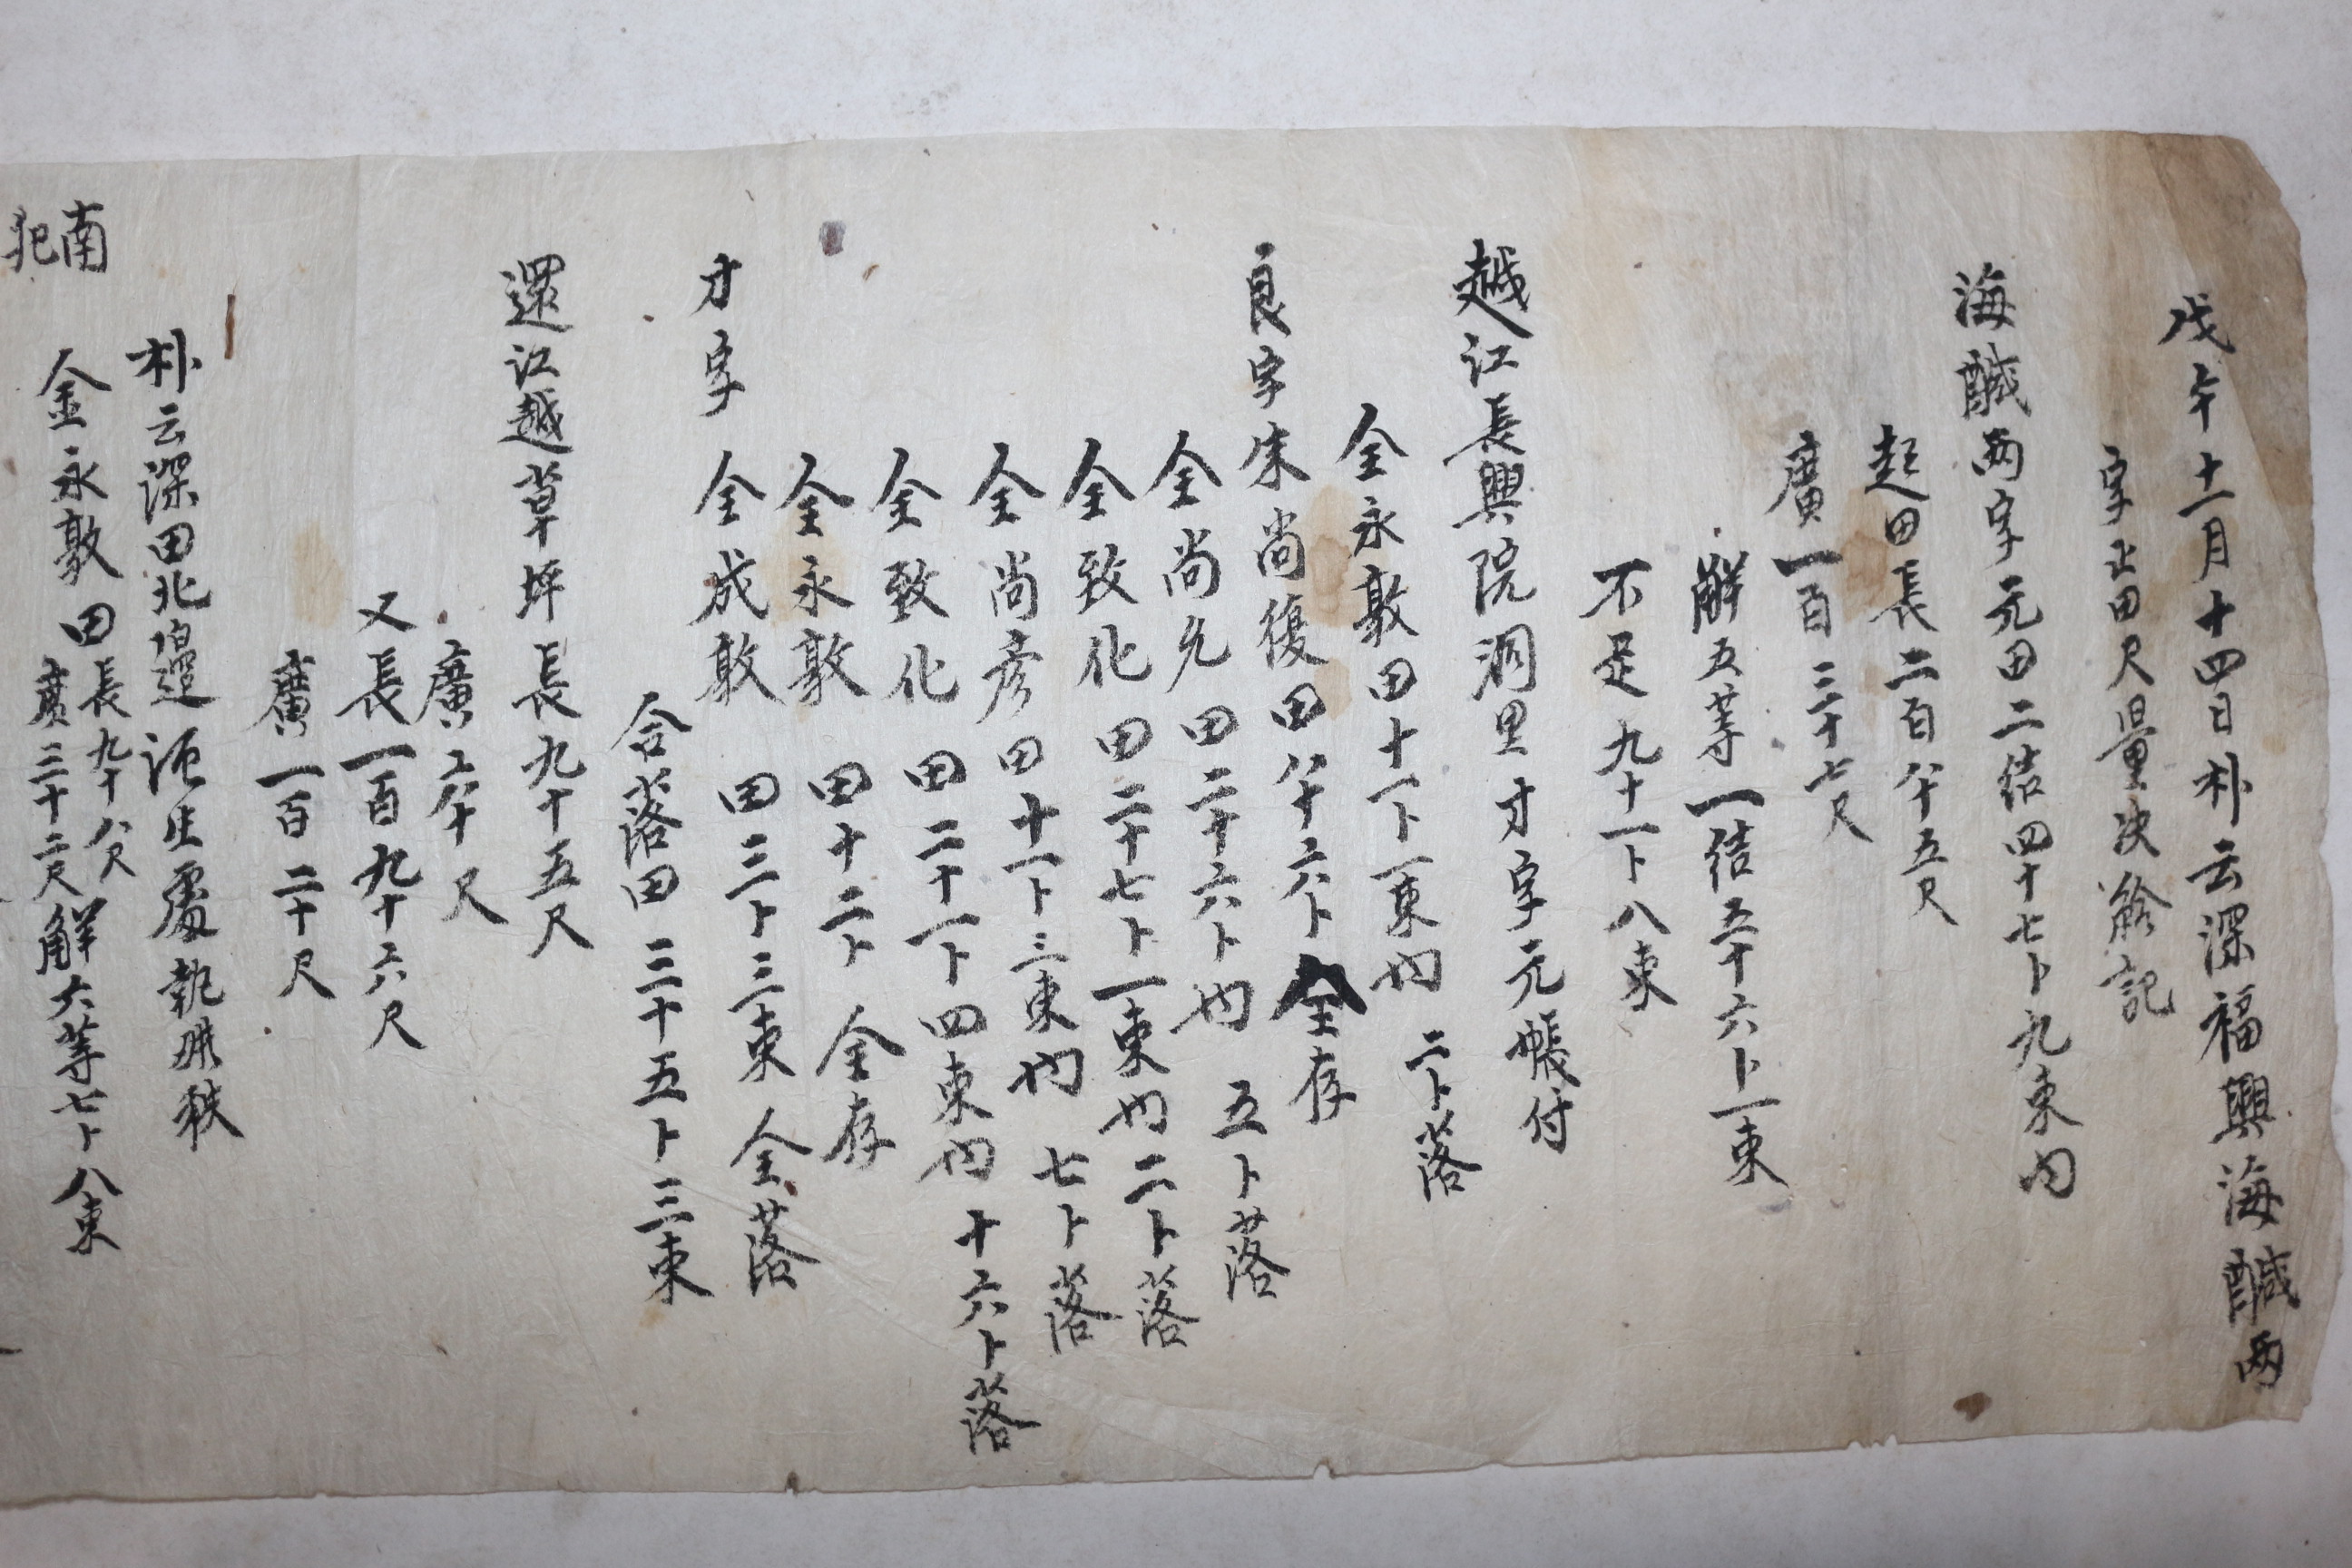 戊午十一月十四日朴云深福興海醎兩
字止田尺量决給記
海醎兩字元田二結四十七卜九束內
起田長二百八十五尺
廣一百三十七尺
解五等一結五十六卜一束
不足九十一卜八束
越江長興院洞里才字元帳付
全永敦田十一卜一束內 二卜落
良字朱尚復田八十六卜全存
全尚允田二十六卜內 五卜落
全致化田二十七卜一束內二卜落
全尚彥田十一卜三束內 七卜落
全致化 田二十一卜四束內十六卜落
全永敦 田十二卜 全存
才字 全成敦 田三卜三束全落
合落田三十五卜三束
還江越草坪長九十五尺
廣六十尺
又長一百九十六尺
廣一百二十尺
朴云深田北邊泥生處執 秩
南犯 金永敦田長九十八尺廣三十二尺解六等七卜八束